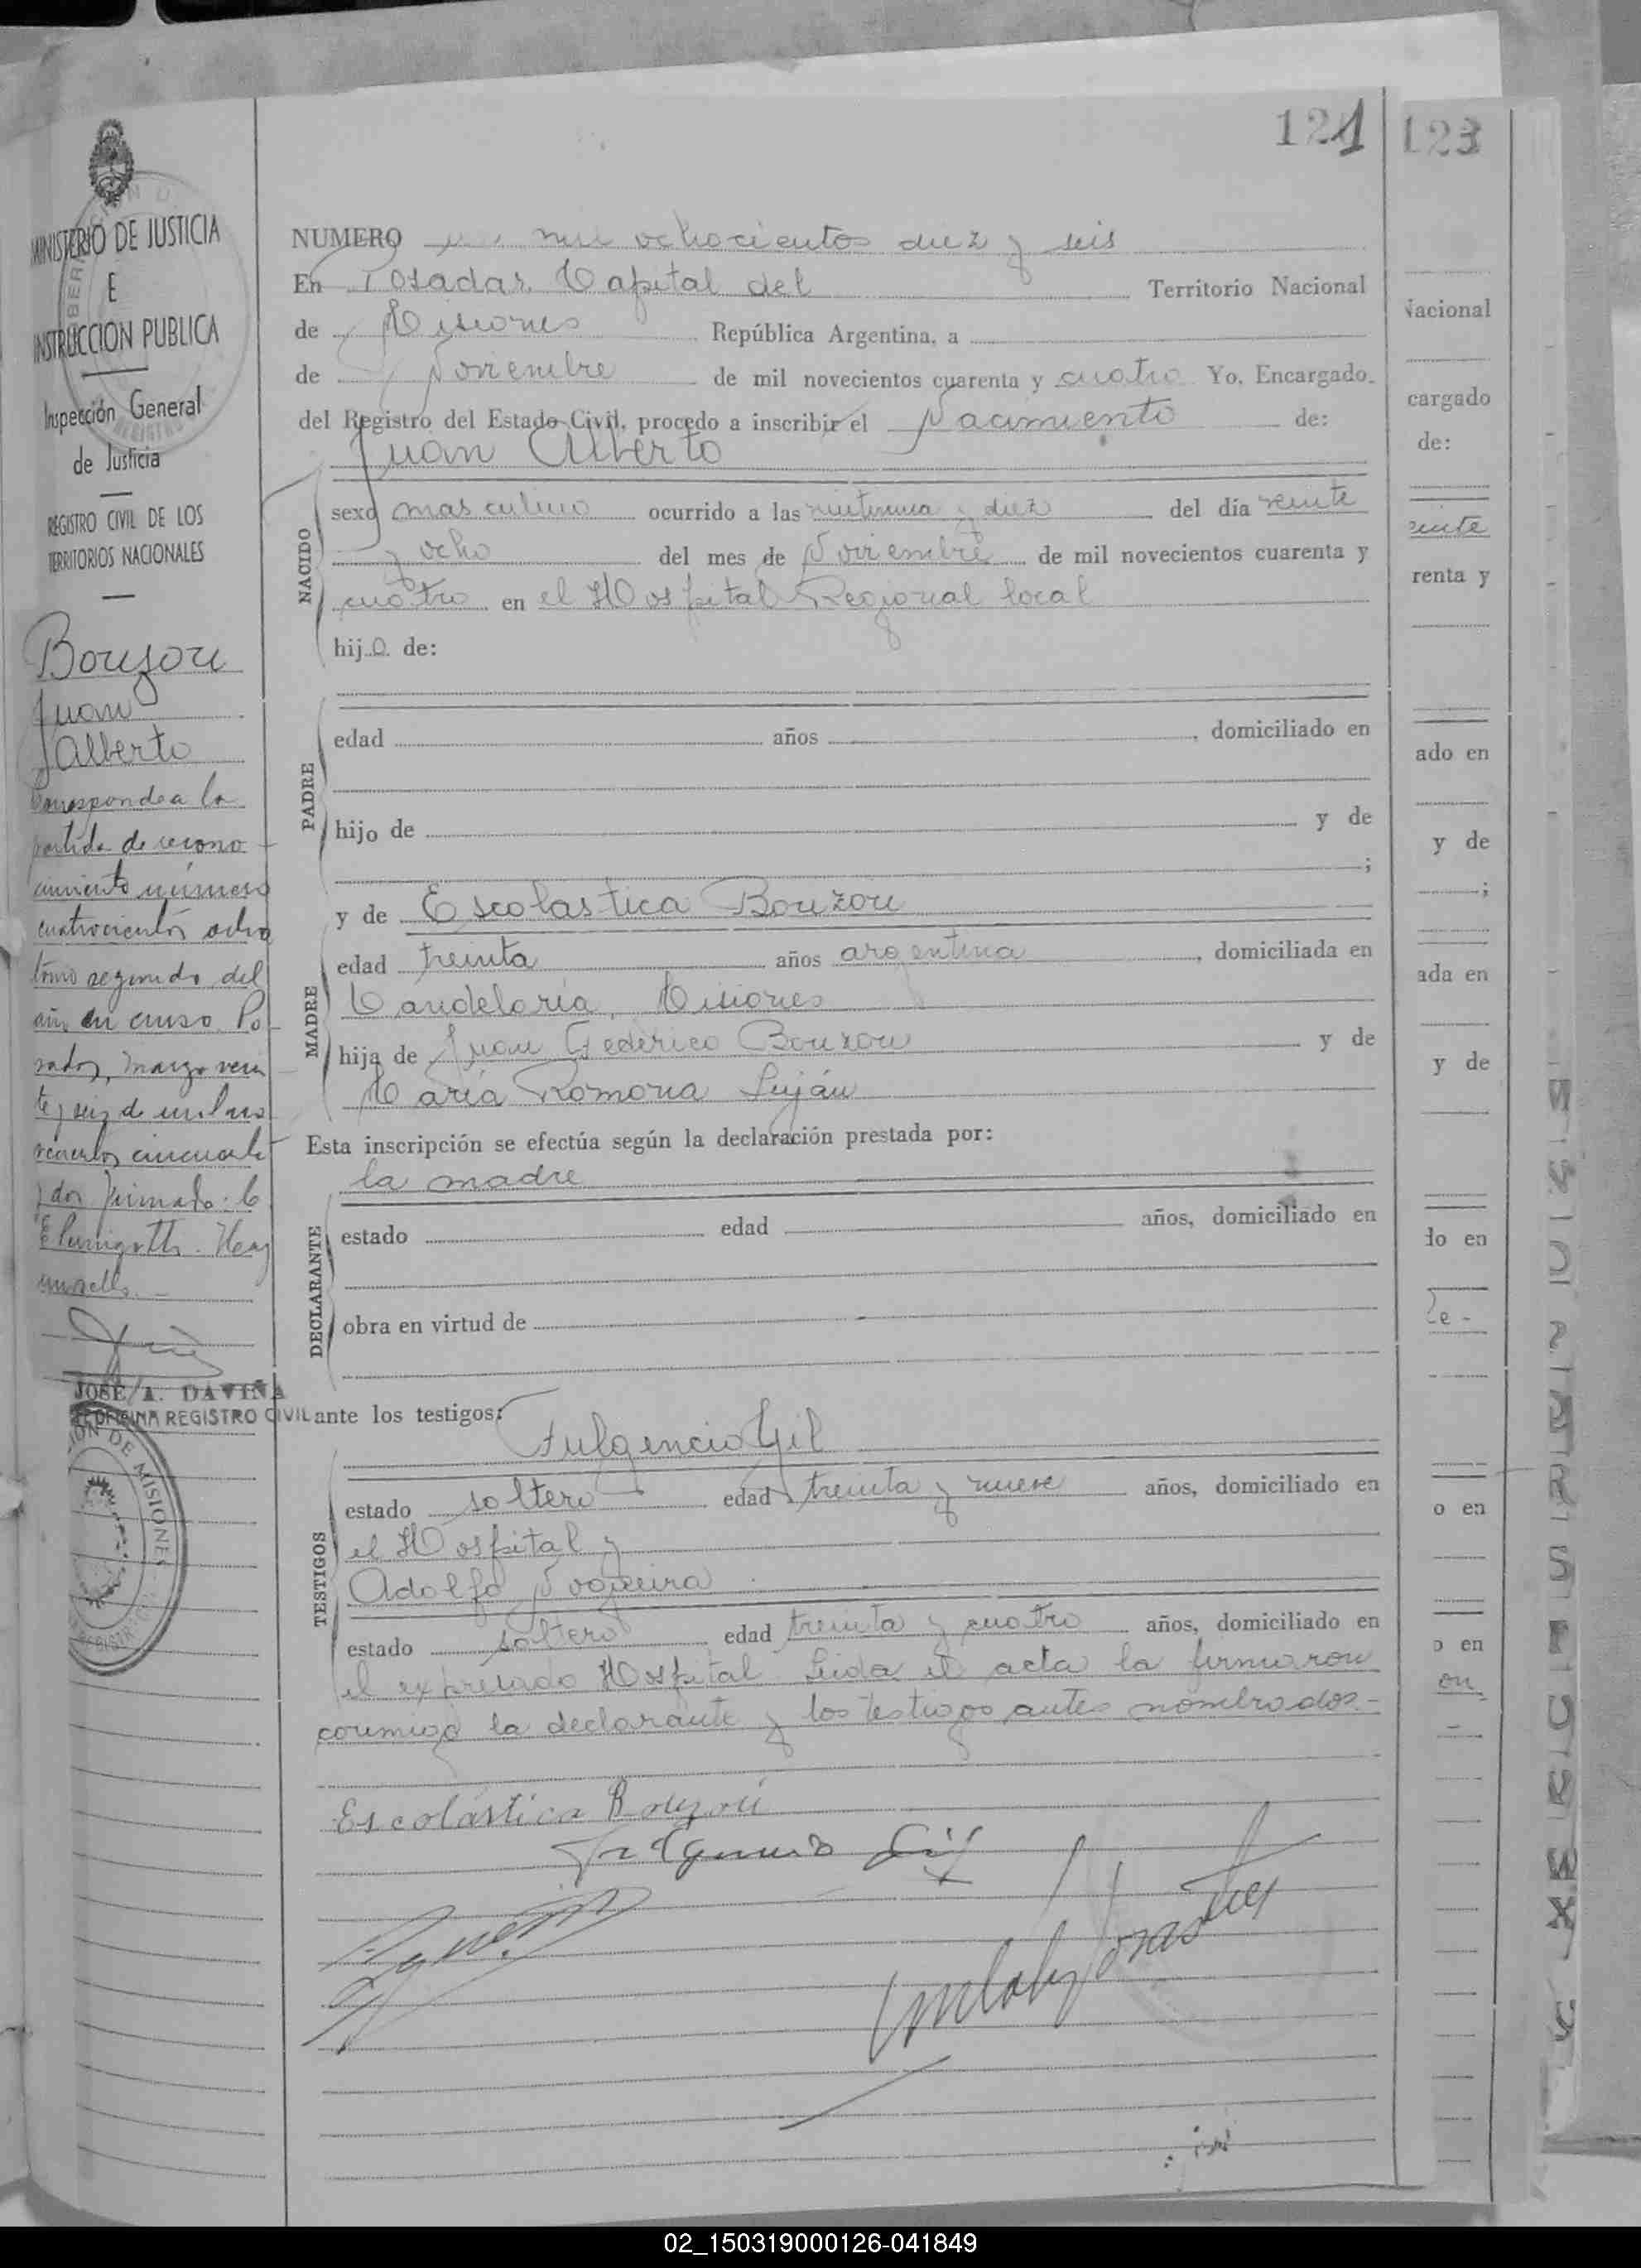 121
123
MINISTERIO DE JUSTICIA
E
INSTRUCCION PUBLICA
Inspección General
de Justicia
REGISTRO CIVIL DE LOS
TERRITORIOS NACIONALES
Bouzon
Juan
Alberto
Corresponde a la
partida de recono-
cimiento número
cuatrocientos ocho
tomo segundo del
año en curso. Po-
sadas, marzo vein-
te y seis de mil no-
vecientos cincuenta
y dos firmado: C
JOSE A. DAVIÑA
OFICINA REGISTRO CIVIL
DE MISIONES
NUMERO mil ochocientos diez y seis
En Posadas, Capital del Territorio Nacional
de Misiones República Argentina, a
de Noviembre de mil novecientos cuarenta y cuatro Yo, Encargado
del Registro del Estado Civil, procedo a inscribir el Nacimiento de:
Juan Alberto
NACIDO
sexo masculino ocurrido a las y diez del día veinte
y ocho del mes de Noviembre de mil novecientos cuarenta y
cuatro en el Hospital Regional local
hijo de:
PADRE
edad años , domiciliado en
hijo de y de
;
MADRE
y de Escolastica Bouzon
edad treinta años argentina , domiciliada en
Candelaria, Misiones
hija de Juan Federico Bouzon y de
María Romona Luján
Esta inscripción se efectúa según la declaración prestada por:
la madre
DECLARANTE
estado edad años, domiciliado en
obra en virtud de
ante los testigos:
Fulgencio Gil
TESTIGOS
estado soltero edad treinta y nueve años, domiciliado en
el Hospital y
Adolfo Nogueira
estado soltero edad treinta y cuatro años, domiciliado en
el expresado Hospital Leida el acta la firmaron
conmigo la declarante y los testigos antes nombrados.-
Escolástica Bouzon
Fulgencio Gil
Nacional
cargado
de:
einte
renta y
ado en
y de
;
ada en
y de
do en
o en
o en
on
02_150319000126-041849